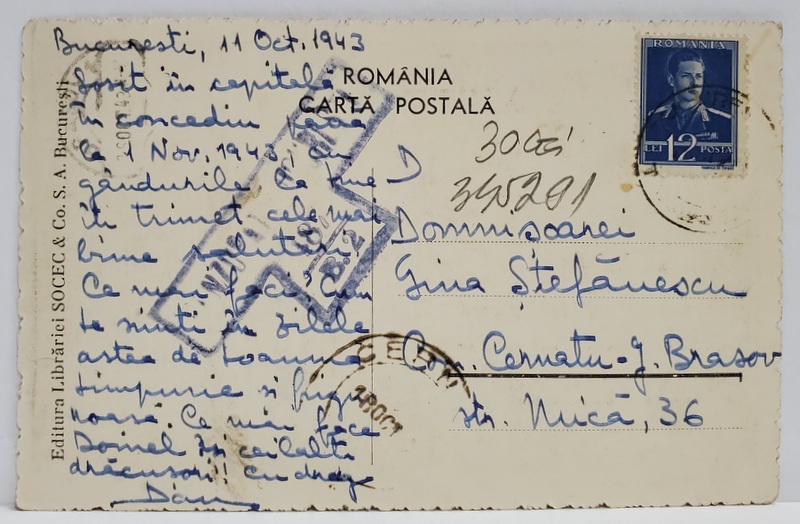 București, 11 Oct. 1943
Sosit în capitală
în concediu până
la 1 Nov. 1943, cu
gândurile la tine
îți trimet cele mai
bune salutări.
Ce mai faci? Cum
te simți în zilele
astea de toamnă
timpurie și frigu
roasă. Ce mai face
Doinel și ceilalți
drăcușori!! cu drag
Dan
ROMÂNIA
CARTĂ POSTALĂ
30 lei
345291
D
Domnișoarei
Gina Ștefănescu
Com. Cernatu-J. Brasov
str. Mică, 36
ROMANIA
LEI 12 POSTA
B.2
CERN
18 OCT
Editura Librăriei SOCEC & Co. S. A. București